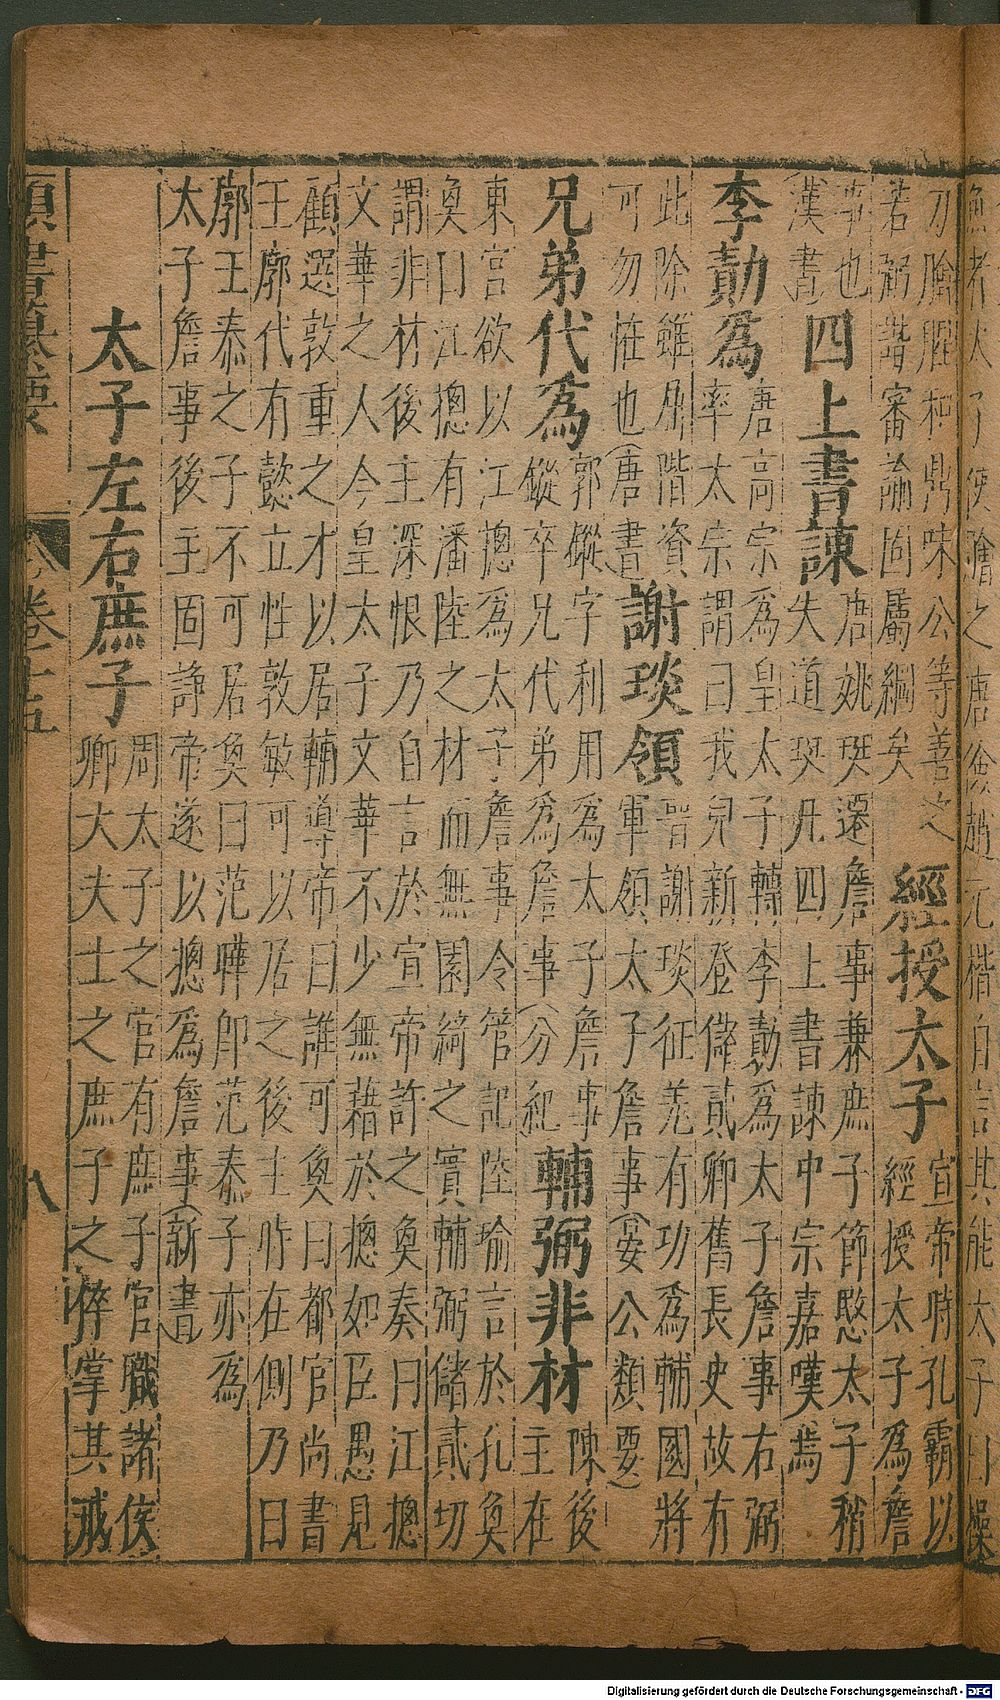 無者太子使獪之唐儉趙元楷自言其能太子曰操
刀膾鯉和鼎味公等善之　經授太子　宣帝時孔霸以
若弼諧審諭固屬綱矣　經授太子為詹
事也　四上書諫　唐姚珽遷詹事兼庶子節愍太子稍
漢書　失道珽凡四上書諫中宗嘉嘆焉
李勣為　唐高宗為皇太子轉李勣為太子詹事右弼
率太宗謂曰我兒新登儲貳卿舊長史故有
此除雖屈階資　謝琰領　晋謝琰征羗有功為輔國將
可勿怪也（唐書）　軍領太子詹事（安公類要）
兄弟代為　郭鏦字利用為太子詹事　輔弼非材　陳後
鏦卒兄代弟為詹事（分紀　主在
東宮欲以江摠為太子詹事令管記陸瑜言於孔奐
奐曰江摠有潘陸之材而無園綺之實輔弼儲貳切
謂非材後主深恨乃自言於宣帝許之奐奏曰江摠
文華之人今皇太子文華不少無藉於摠如臣愚見
顧選敦重之才以居輔導帝曰誰可奐曰都官尚書
王廓代有懿立性敦敏可以居之後主時在側乃曰
廓王泰之子不可居奐曰范曄即范泰子亦為
太子詹事後主固諍帝遂以摠為詹事（新書）
太子左右庶子　周太子之官有庶子官職諸侯
卿大夫士之庶子之倅掌其戒
卷十五
八
Digitalisierung gefördert durch die Deutsche Forschungsgemeinschaft - DFG